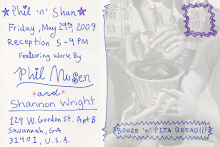 Phil 'n' Shan
Friday, May 29th, 2009
Reception 5-9 PM
Featuring Work By
Phil Mussen
and
Shannon Wright
129 W. Gordon St. Apt B
Savannah, GA
31401, U.S.A.
Booze 'n' Pita Bread!!!